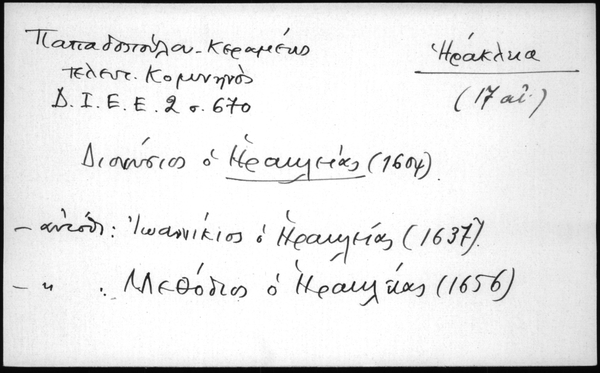 Παπαδοπούλου-Κεραμέως
Ἡράκλεια
τελευτ. Κομνηνὸς
(17 αἰ.)
Δ.Ι.Ε.Ε. 2 σ. 670
Διονύσιος ὁ Ἡρακλείας (1604)
– αὐτόθ: Ἰωαννίκιος ὁ Ἡρακλείας (1637)
– " : Μεθόδιος ὁ Ἡρακλείας (1656)